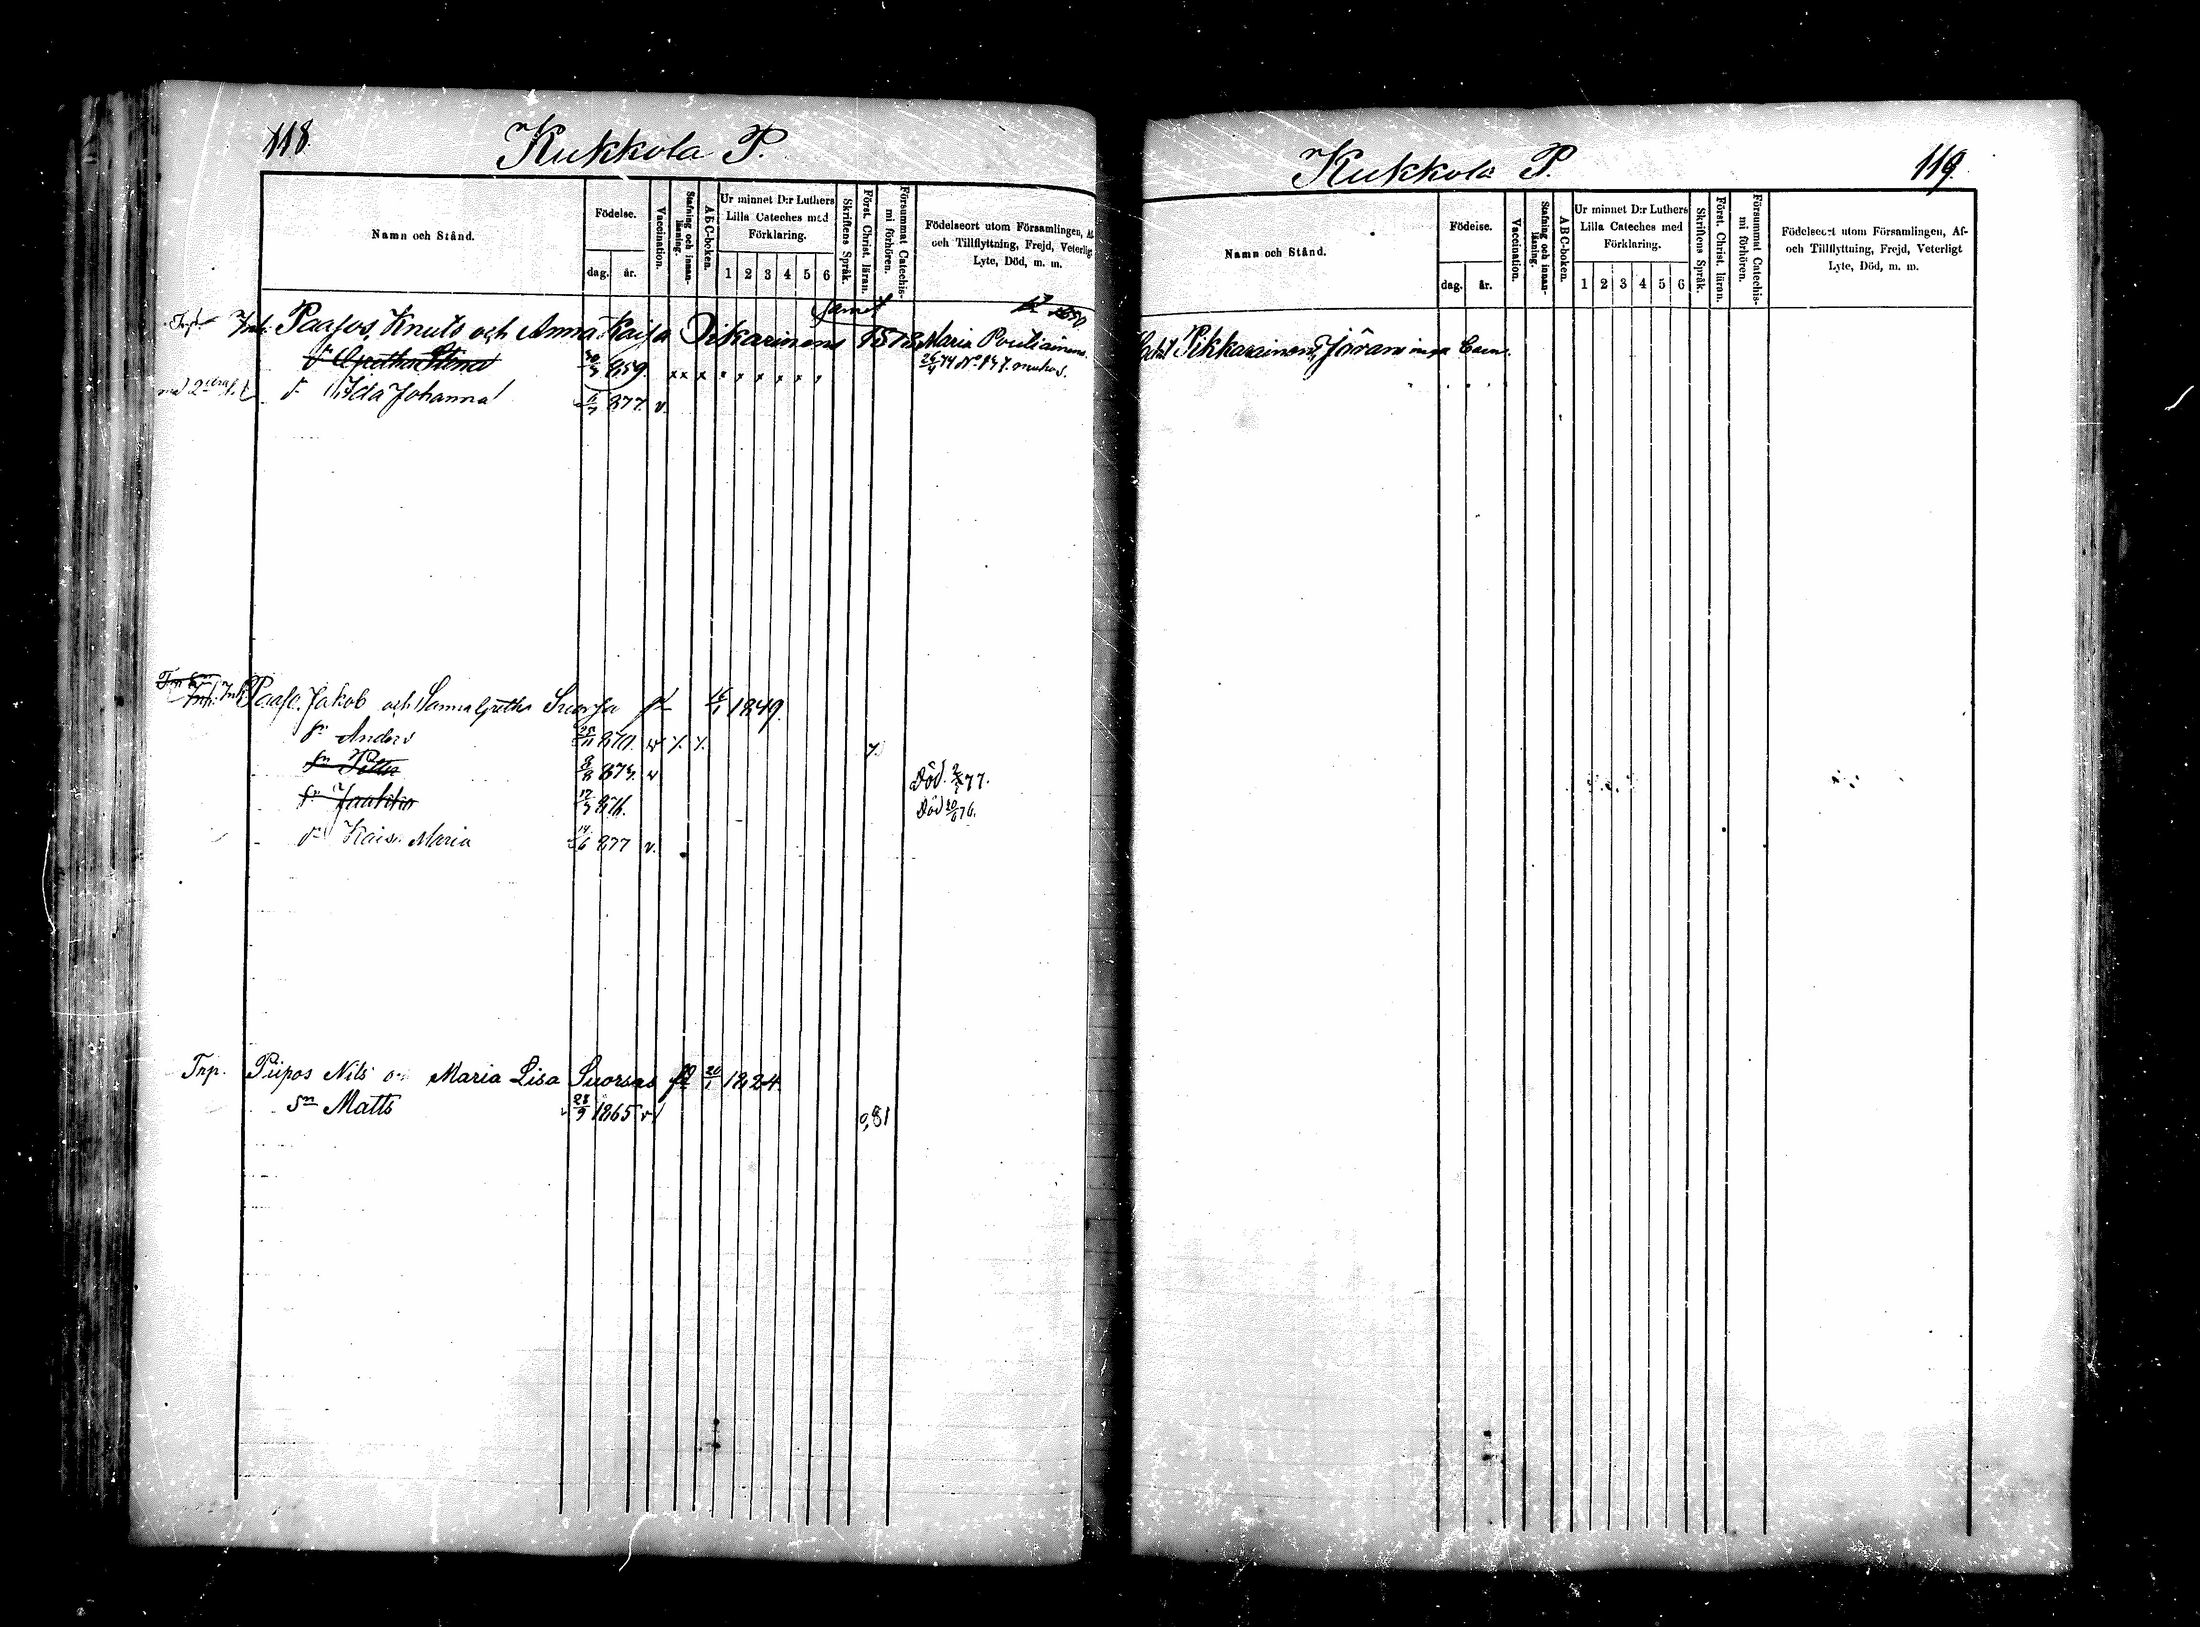 118.
Kukkola P.
Namn och Stånd.
Födelse.
dag.
år.
Vaccination.
Stafning och innan-
läsning.
ABC-boken.
Ur minnet D:r Luthers
Lilla Cateches med
Förklaring.
1 2 3 4 5 6
Skriftens Språk.
Först. Christ. läran.
Försummat Catechis-
mi förhören.
Födelseort utom Församlingen, Af
och Tillflyttning, Frejd, Veterligt
Lyte, Död, m. m.
samt
Inh. Paasos, Knuts och Anna Kaisa Pikkarainens Maria Pouliainens
dr Gretha Stina 30/3 859. x x x x x x x x x 26/4 74 No 137. muhos.
dr Ida Johanna 877. v.
Inh. Paaso. Jakob och Sanna Gretha Suorsa fl 16/1 1849.
sn Anders 25/11 870. v
sn Petter 8/8 873. v Död 77.
sn Jaakko 17/3 876. Död 20/6 76.
dr Kaisa Maria 14/6 877 v.
Tnp. Piipos Nils o Maria Lisa Suorsas 20/1 1824.
sn Matts 28/9 1865 v 0,81
Kukkola P.
119.
Namn och Stånd.
Födelse.
dag.
år.
Vaccination.
Stafning och innan-
läsning.
ABC-boken.
Ur minnet D:r Luthers
Lilla Cateches med
Förklaring.
1 2 3 4 5 6
Skriftens Språk.
Först. Christ. läran.
Försummat Catechis-
mi förhören.
Födelseort utom Församlingen, Af-
och Tillflyttning, Frejd, Veterligt
Lyte, Död, m. m.
Pikkarainens, Jöran inga barn.